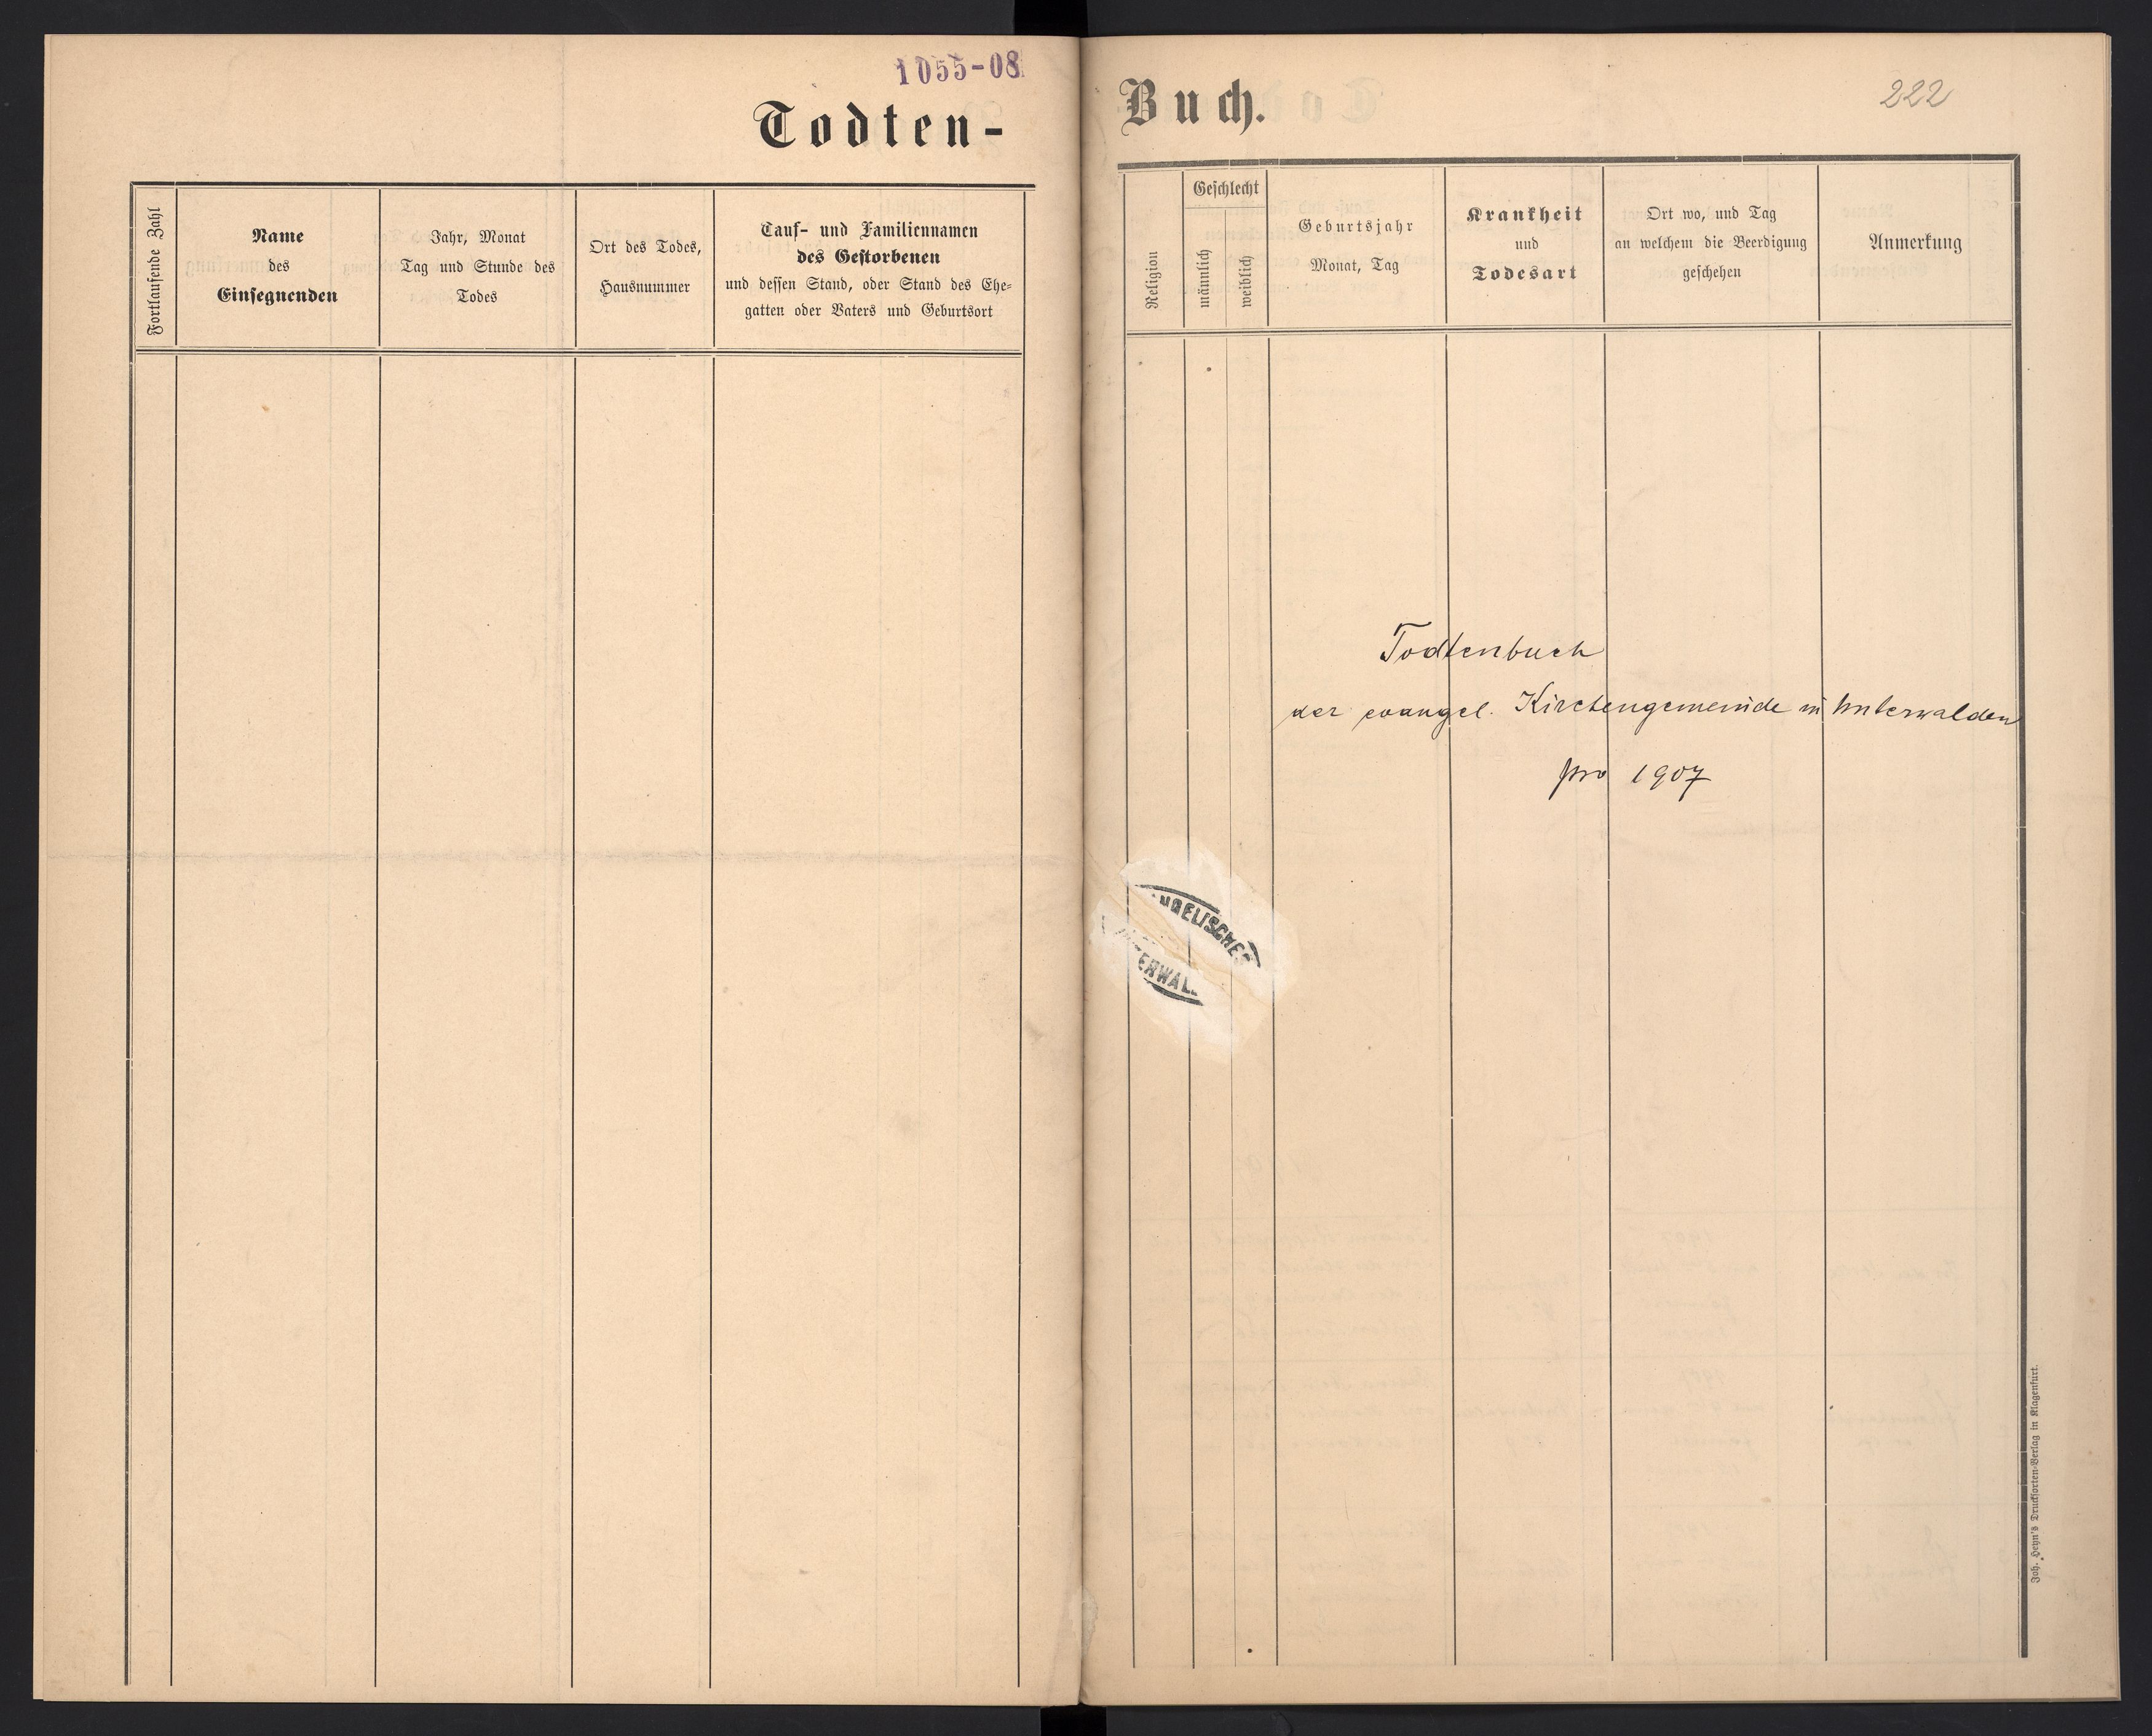 1055-08
Todten-
Fortlaufende Zahl
Name
des
Einsegnenden
Jahr, Monat
Tag und Stunde des
Todes
Ort des Todes,
Hausnummer
Tauf- und Familiennamen
des Gestorbenen
und dessen Stand, oder Stand des Ehe-
gatten oder Vaters und Geburtsort
Buch.
222
Religion
Geschlecht
männlich
weiblich
Geburtsjahr
Monat, Tag
Krankheit
und
Todesart
Ort wo, und Tag
an welchem die Beerdigung
geschehen
Anmerkung
Todtenbuch
der evangel. Kirchengemeinde in Unterwalden
pro 1907
NGELISCHES
TERWAL
Joh. Heyn's Drucksorten-Verlag in Klagenfurt.